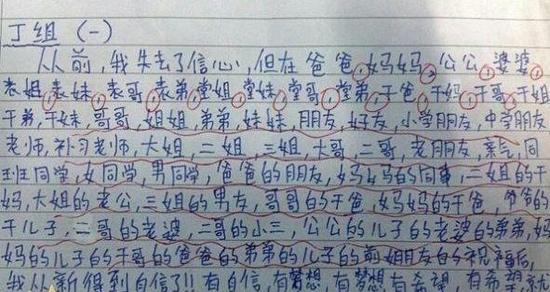 丁组(一)
从前,我失去了信心,但在爸爸,妈妈,公公,婆婆,
表姐,表妹,表哥,表弟,堂姐,堂妹,堂哥,堂弟,干爸,干妈,干哥,干姐
干弟,干妹,哥哥,姐姐,弟弟,妹妹,朋友,好友,小学朋友,中学朋友
老师,补习老师,大姐,二姐,三姐,大哥,二哥,老朋友,亲气,同
班同学,女同学,男同学,爸爸的朋友,妈妈的同事,二姐的干
妈,大姐的老公,三姐的男友,哥哥的干爸,妈妈的干爸,爷爷的
干儿子,二哥的老婆,二哥的小三,公公的儿子的老婆的弟弟,妈
妈的儿子的干哥的爸爸的弟弟的儿子的前姐朋友的祝福后,
我从新得到自信了!!有自信,有梦想,有梦想有希望,有希望就